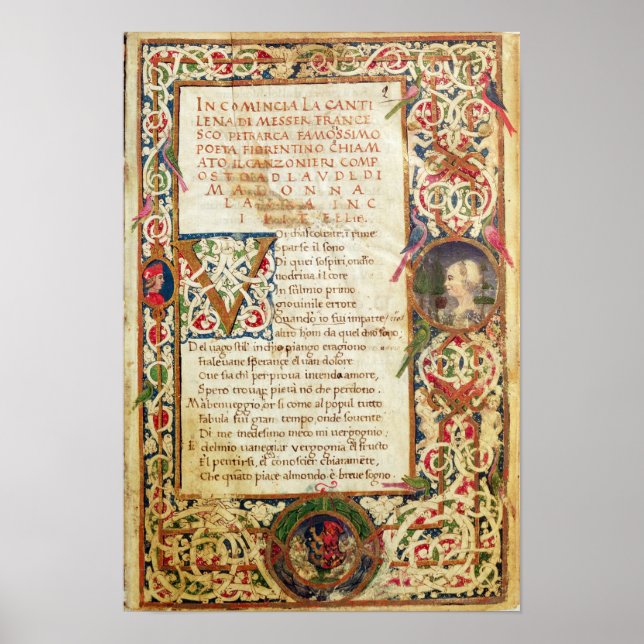 2
IN COMINCIA LA CANTI
LENA DI MESSER FRANCE
SCO PETRARCA FAMOSSIMO
POETA FIORENTINO CHIAM
ATO IL CANZONIERI COMP
OSTO AD LAVDE DI
MADONNA
LAVRA INCI
PIT FELIC.
VOi chascoltate, i rime
Sparse il sono
Di quei sospiri, ondio
nodriva il core
In sulmio primo
giovinile errore
Quando io fui imparte
altro hom da quel chio sono;
Del vago stil' inchio piango eragiono
Fralevane speranze el van dolore
Oue sia chi per prova intenda amore,
Spero trovar pietà nō che perdono.
Ma ben veggio, or si come al popul tutto
Fabula fui gran tempo, onde sovente
Di me medesimo meco mi vergogno:
E delmio vanegiar vergogna el frusto
El pentirsi, el conoscier chiaramēte,
Che quāto piace almondo è breve sogno.